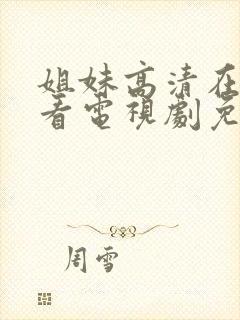 姐妹高清在
看电視劇免
周雪